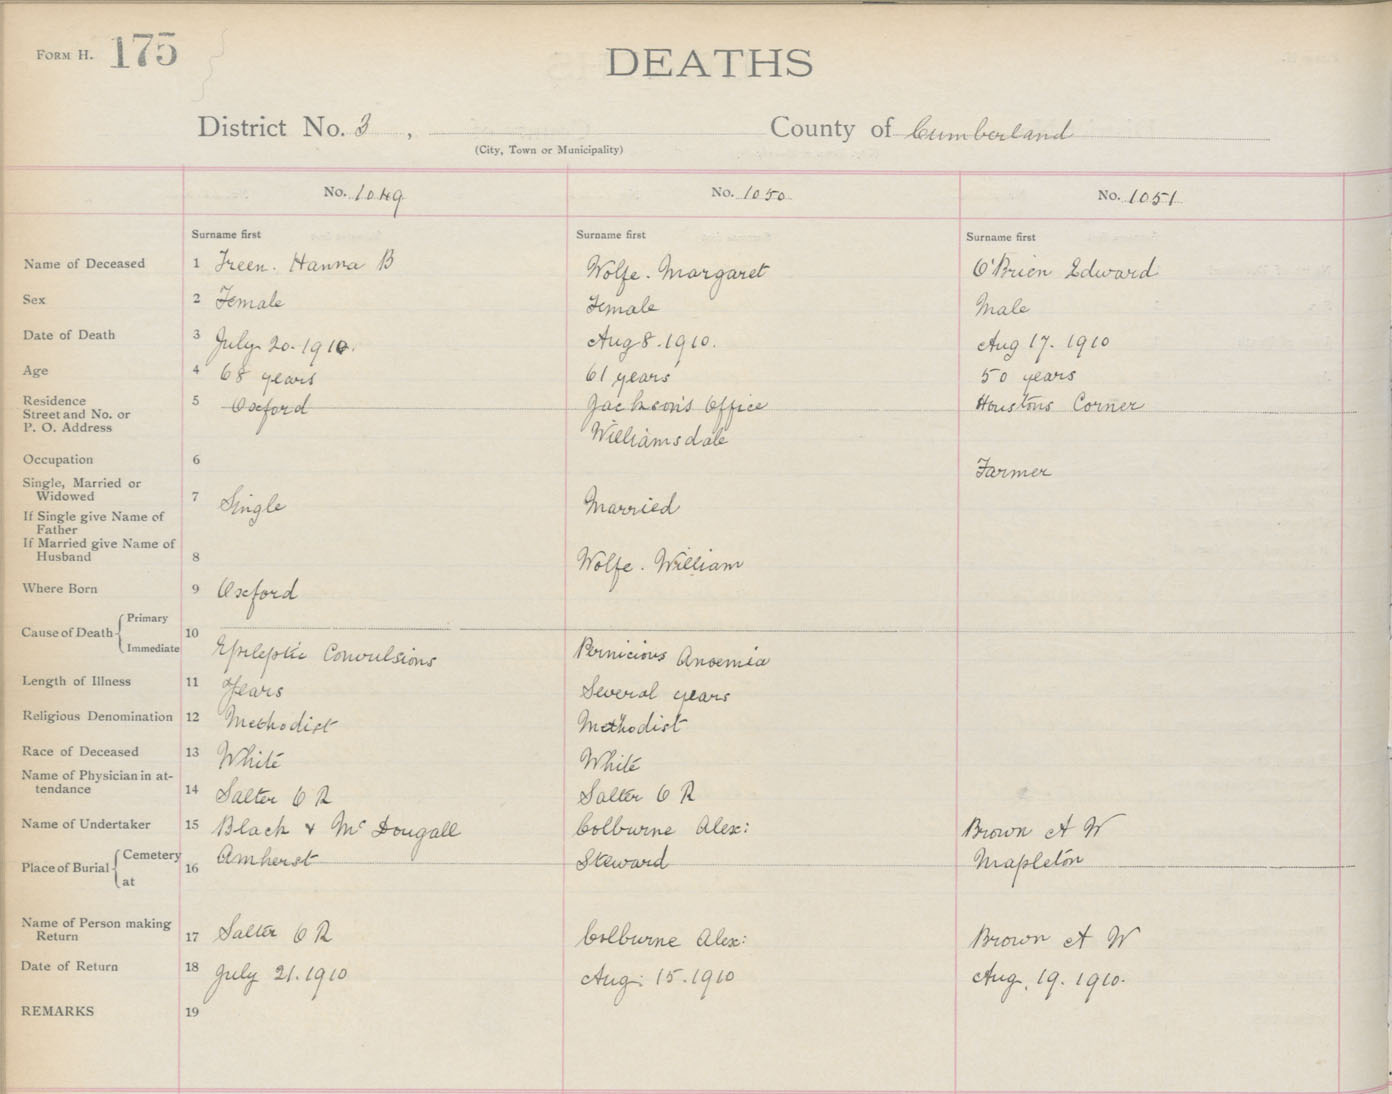 FORM H. 175
DEATHS
District No. 3 , County of Cumberland
(City, Town or Municipality)
No. 1049 No. 1050 No. 1051
Surname first Surname first Surname first
Name of Deceased 1 Treen. Hanna B Wolfe. Margaret O'Brien Edward
Sex 2 Female Female Male
Date of Death 3 July 20. 1910. Aug 8. 1910. Aug 17. 1910
Age 4 68 years 61 years 50 years
Residence 5 Oxford Jackson's Office Houstons Corner
Street and No. or
P. O. Address Williamsdale
Occupation 6 Farmer
Single, Married or
Widowed 7 Single Married
If Single give Name of
Father
If Married give Name of
Husband 8 Wolfe. William
Where Born 9 Oxford
Cause of Death Primary 10
Immediate Epileptic Convulsions Pernicious Anoemia
Length of Illness 11 Years Several years
Religious Denomination 12 Methodist Methodist
Race of Deceased 13 White White
Name of Physician in at-
tendance 14 Salter C R Salter C R
Name of Undertaker 15 Black & Mc Dougall Colburne Alex: Brown A W
Place of Burial Cemetery 16 Amherst Steward Mapleton
at
Name of Person making
Return 17 Salter C R Colburne Alex: Brown A W
Date of Return 18 July 21. 1910 Aug: 15. 1910 Aug. 19. 1910.
REMARKS 19